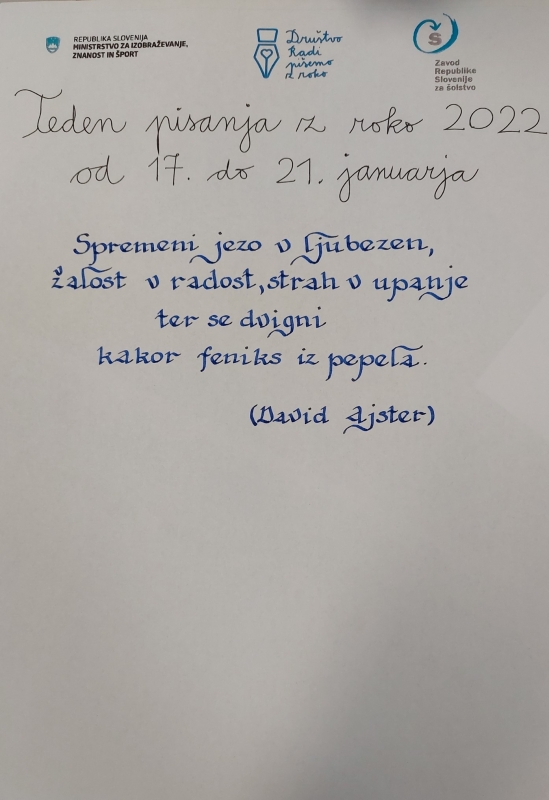 REPUBLIKA SLOVENIJA
MINISTRSTVO ZA IZOBRAŽEVANJE,
ZNANOST IN ŠPORT
Društvo
Radi
pišemo
z roko
S
Zavod
Republike
Slovenije
za šolstvo
Teden pisanja z roko 2022
od 17. do 21. januarja
Spremeni jezo v ljubezen,
žalost v radost, strah v upanje
ter se dvigni
kakor feniks iz pepela.
(David Ajster)